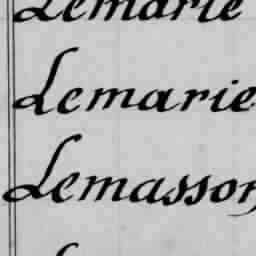 Lemarie
Lemarie
Lemasson